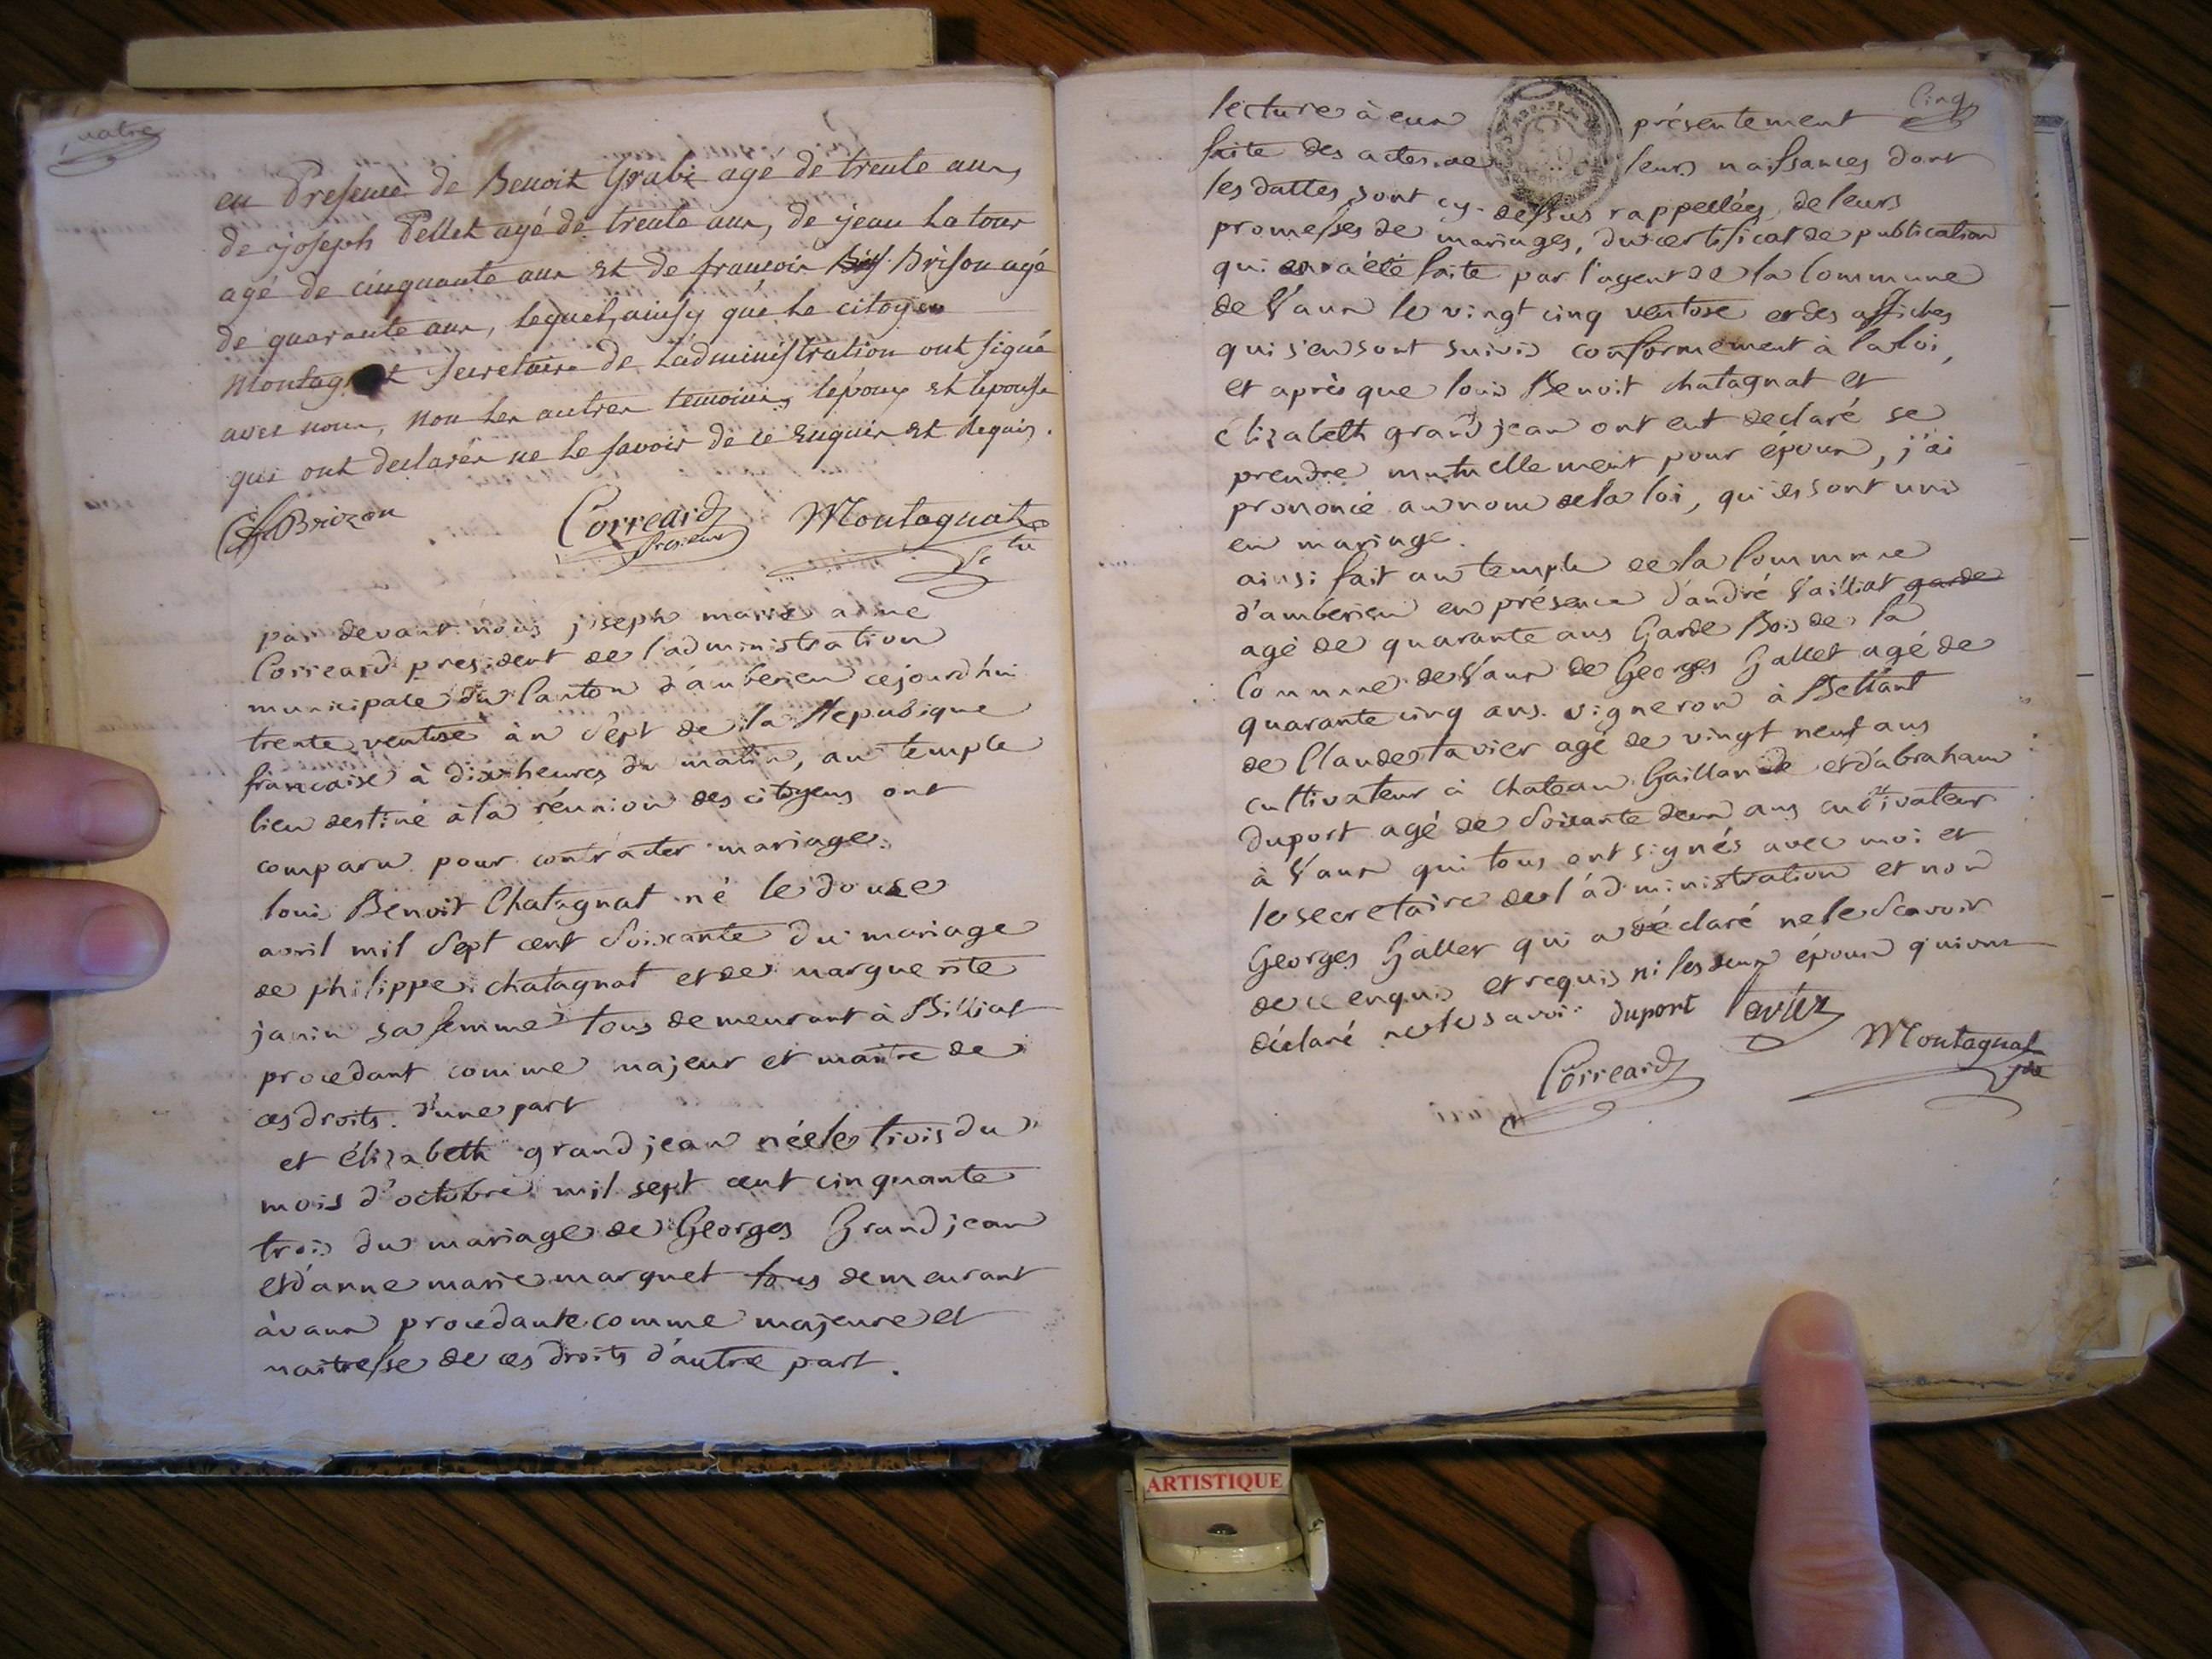 quatre
en Presence de Benoit Grabi agé de trente ans,
de joseph Pellet agé de trente ans, de jean La tour
agé de cinquante ans Et de francois Brison agé
de quarante ans, lequel, ainsy que Le citoyen
Montagnat Secretaire de L'administration ont signé
avec nous, non Les autres temoins, l'époux Et l'epouse
qui ont declarés ne Le savoir de ce Enquis Et Requis.
Brizon Correard Montagnat
president S.re
par devant nous joseph marie aimé
Correard president de l'administration
municipale du Canton d'amberieu cejourd'hui
trente ventose an Sept de la Republique
francaise à dix heures du matin, au temple
lieu destiné à la réunion des citoyens ont
comparu pour contracter mariage.
louis Benoit Chatagnat né le douse
avril mil Sept cent Soixante du mariage
de philippe chatagnat et de marguerite
janin sa femme tous demeurant à Billiat
procedant comme majeur et maitre de
ces droits d'une part
et élizabeth grand jean née le trois du
mois d'octobre mil sept cent cinquante
trois du mariage de Georges Grand jean
et d'anne marie marquet tous demeurant
à vaux procedante comme majeure et
maitresse de ces droits d'autre part.
Cinq
lecture à eux présentement
faite des actes de leurs naissances dont
les dattes sont cy-dessus rappellées, de leurs
promesses de mariages, du certificat de publication
qui en a été faite par l'agent de la Commune
de Vaux le vingt cinq ventose et des affiches
qui s'en sont suivis conformement à la loi,
et après que louis Benoit chatagnat et
Elizabeth grand jean ont eut declaré se
prendre mutuellement pour époux, j'ai
prononcé au nom de la loi, qu'ils sont unis
en mariage.
ainsi fait au temple de la Commune
d'amberieu en présence d'andré Vailliat garde
agé de quarante ans Garde Bois de la
Commune de Vaux de Georges Gallet agé de
quarante cinq ans vigneron à Bettant
de Claude tavier agé de vingt neuf ans
cultivateur à chateau Gaillard et d'abraham
duport agé de Soixante deux ans cultivateur
à Vaux qui tous ont signés avec moi et
le secretaire de l'administration et non
Georges Gallet qui a déclaré ne le Scavoir
de ce enquis et requis ni les deux époux qui ont
déclaré ne le savoir duport tavier
Correard Montagnat
ARTISTIQUE